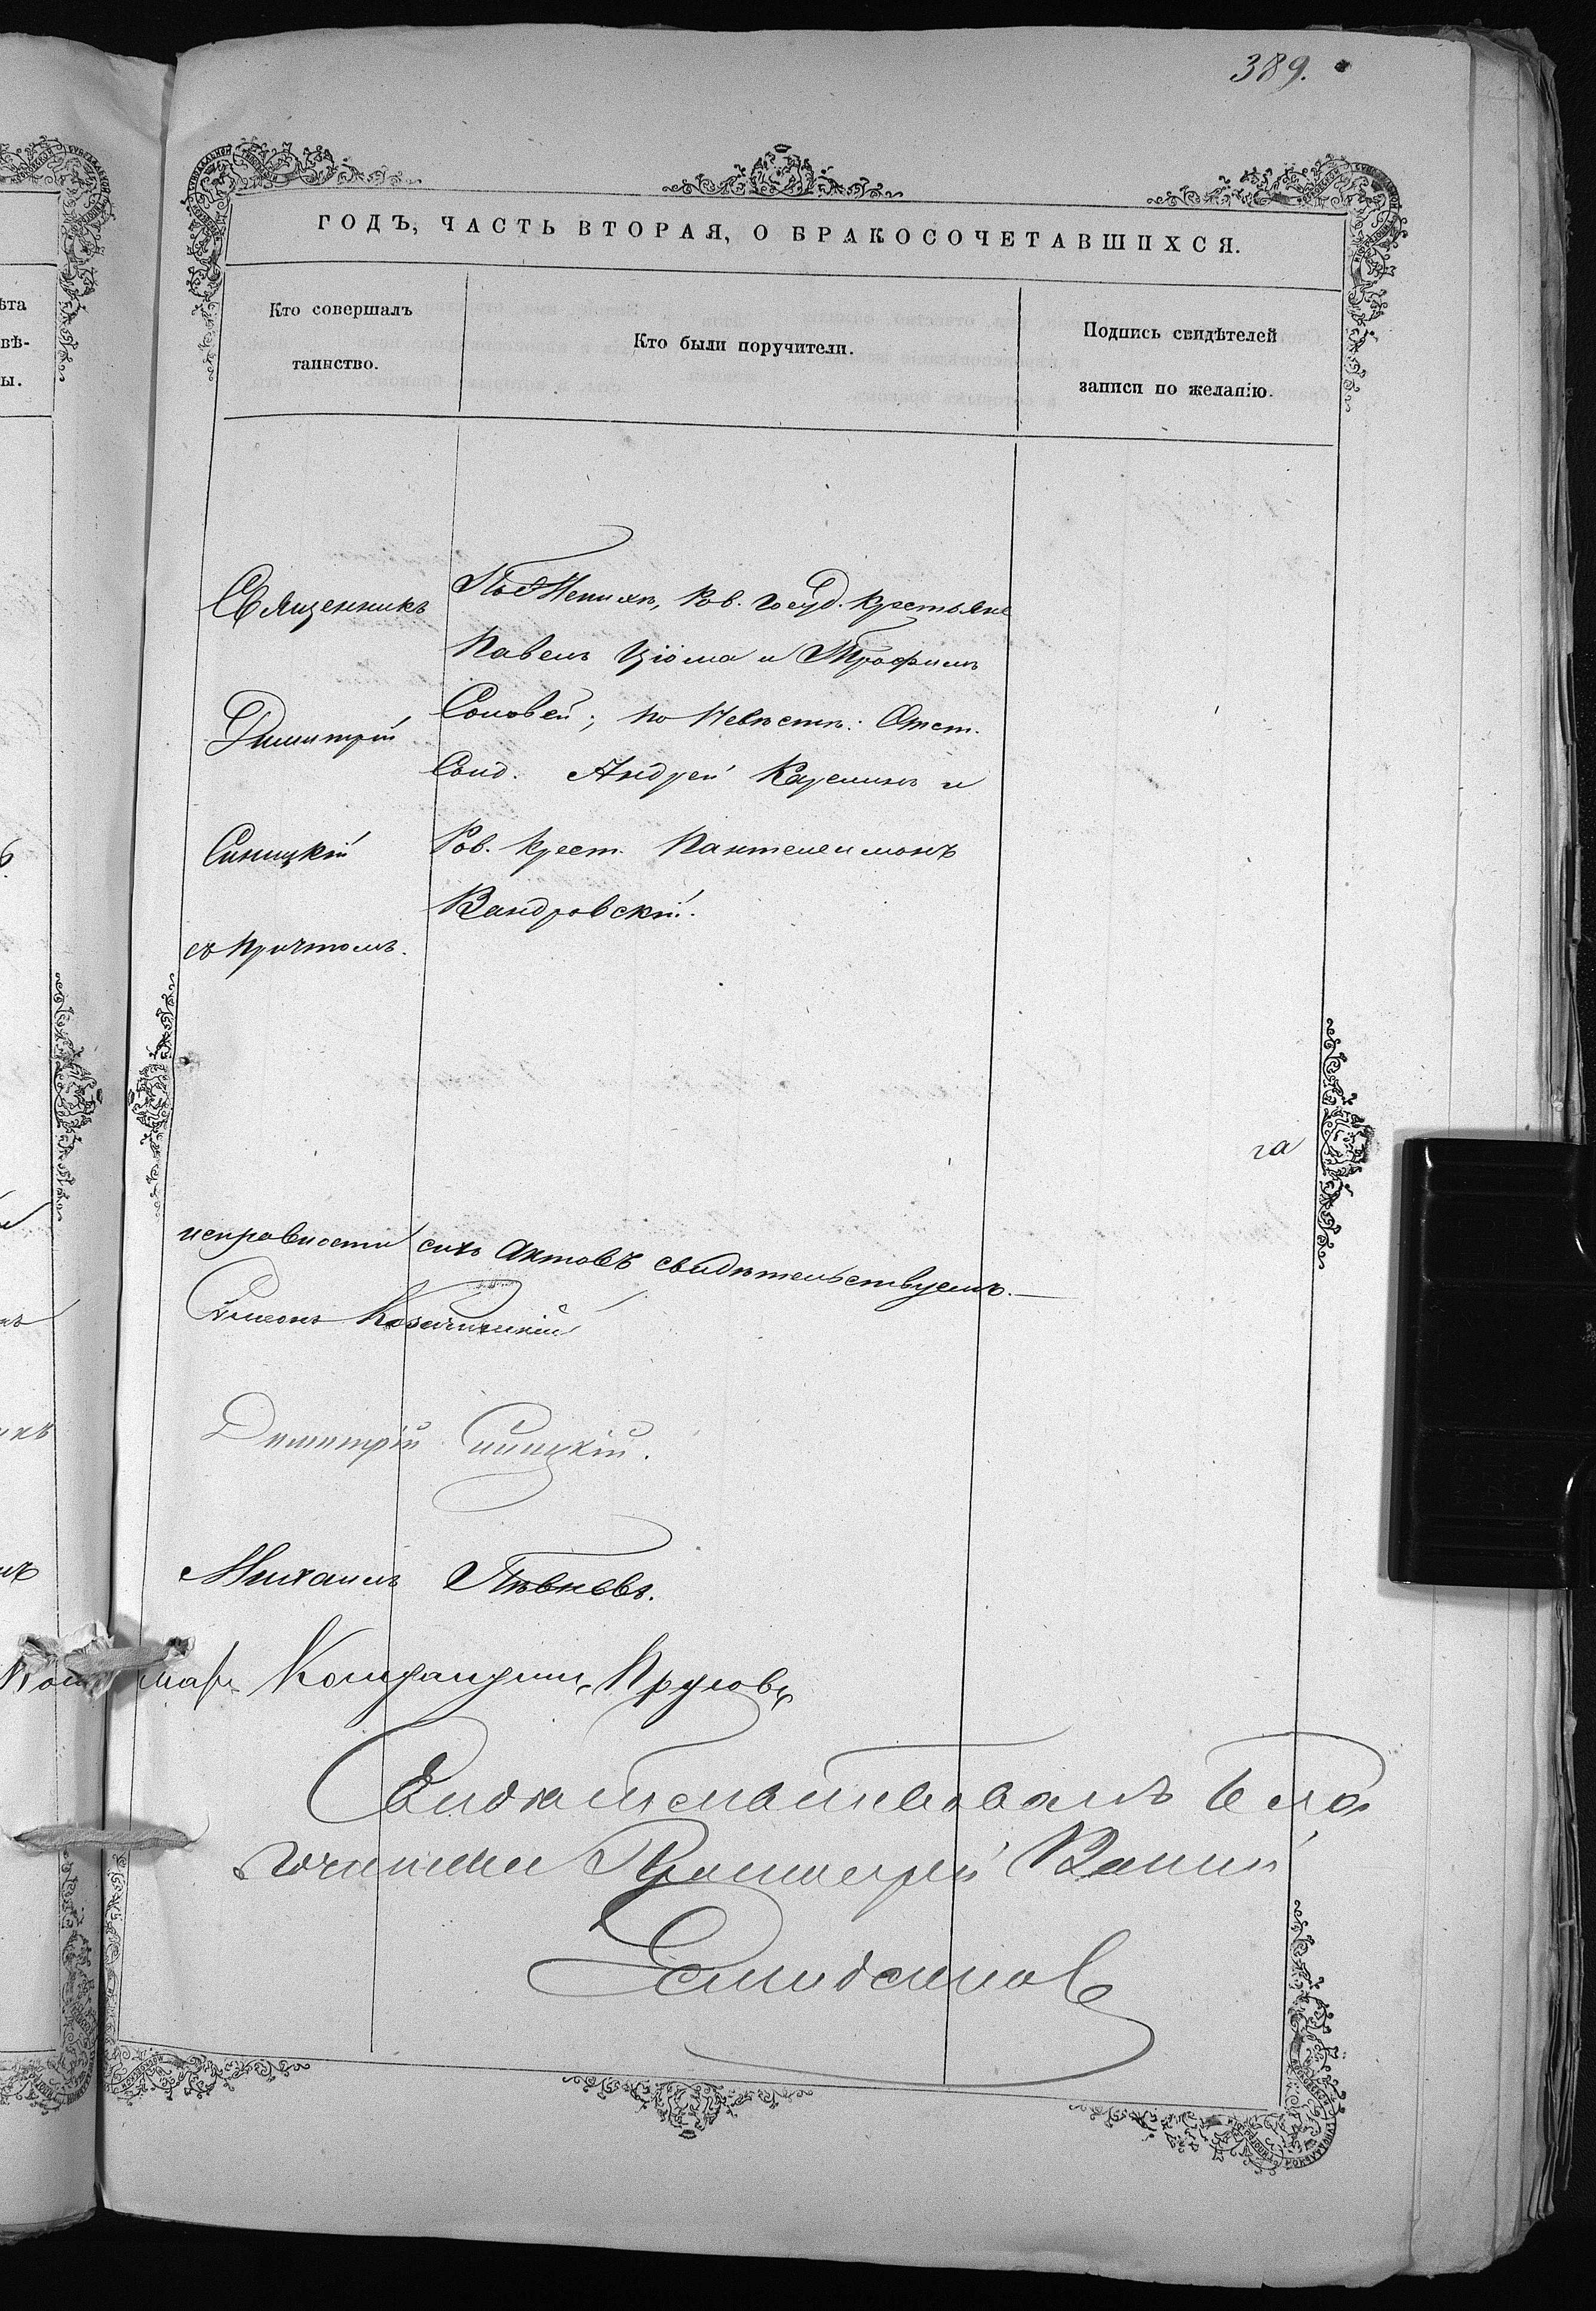 389.
ГОДЪ, ЧАСТЬ ВТОРАЯ, О БРАКОСОЧЕТАВШИХСЯ.
Кто совершалъ
таинство.
Кто были поручители.
Подпись свидѣтелей
записи по желанію.
Священникъ
Димитрій
Синицкій
съ причтомъ.
По Женихѣ, Ров. Госуд. Крестьяне
Павелъ Цюма и Трофимъ
Соловей; по Невѣстѣ: Отст.
Солд. Андрей Карелинъ и
Ров. Крест. Пантелеимонъ
Вандровскій.
исправности сихъ Актовъ свидѣтельствуемъ.
Симеонъ
Димитрій Синицкій.
Михаилъ Пѣвневъ.
Свидѣтельствовалъ Благо
чинный